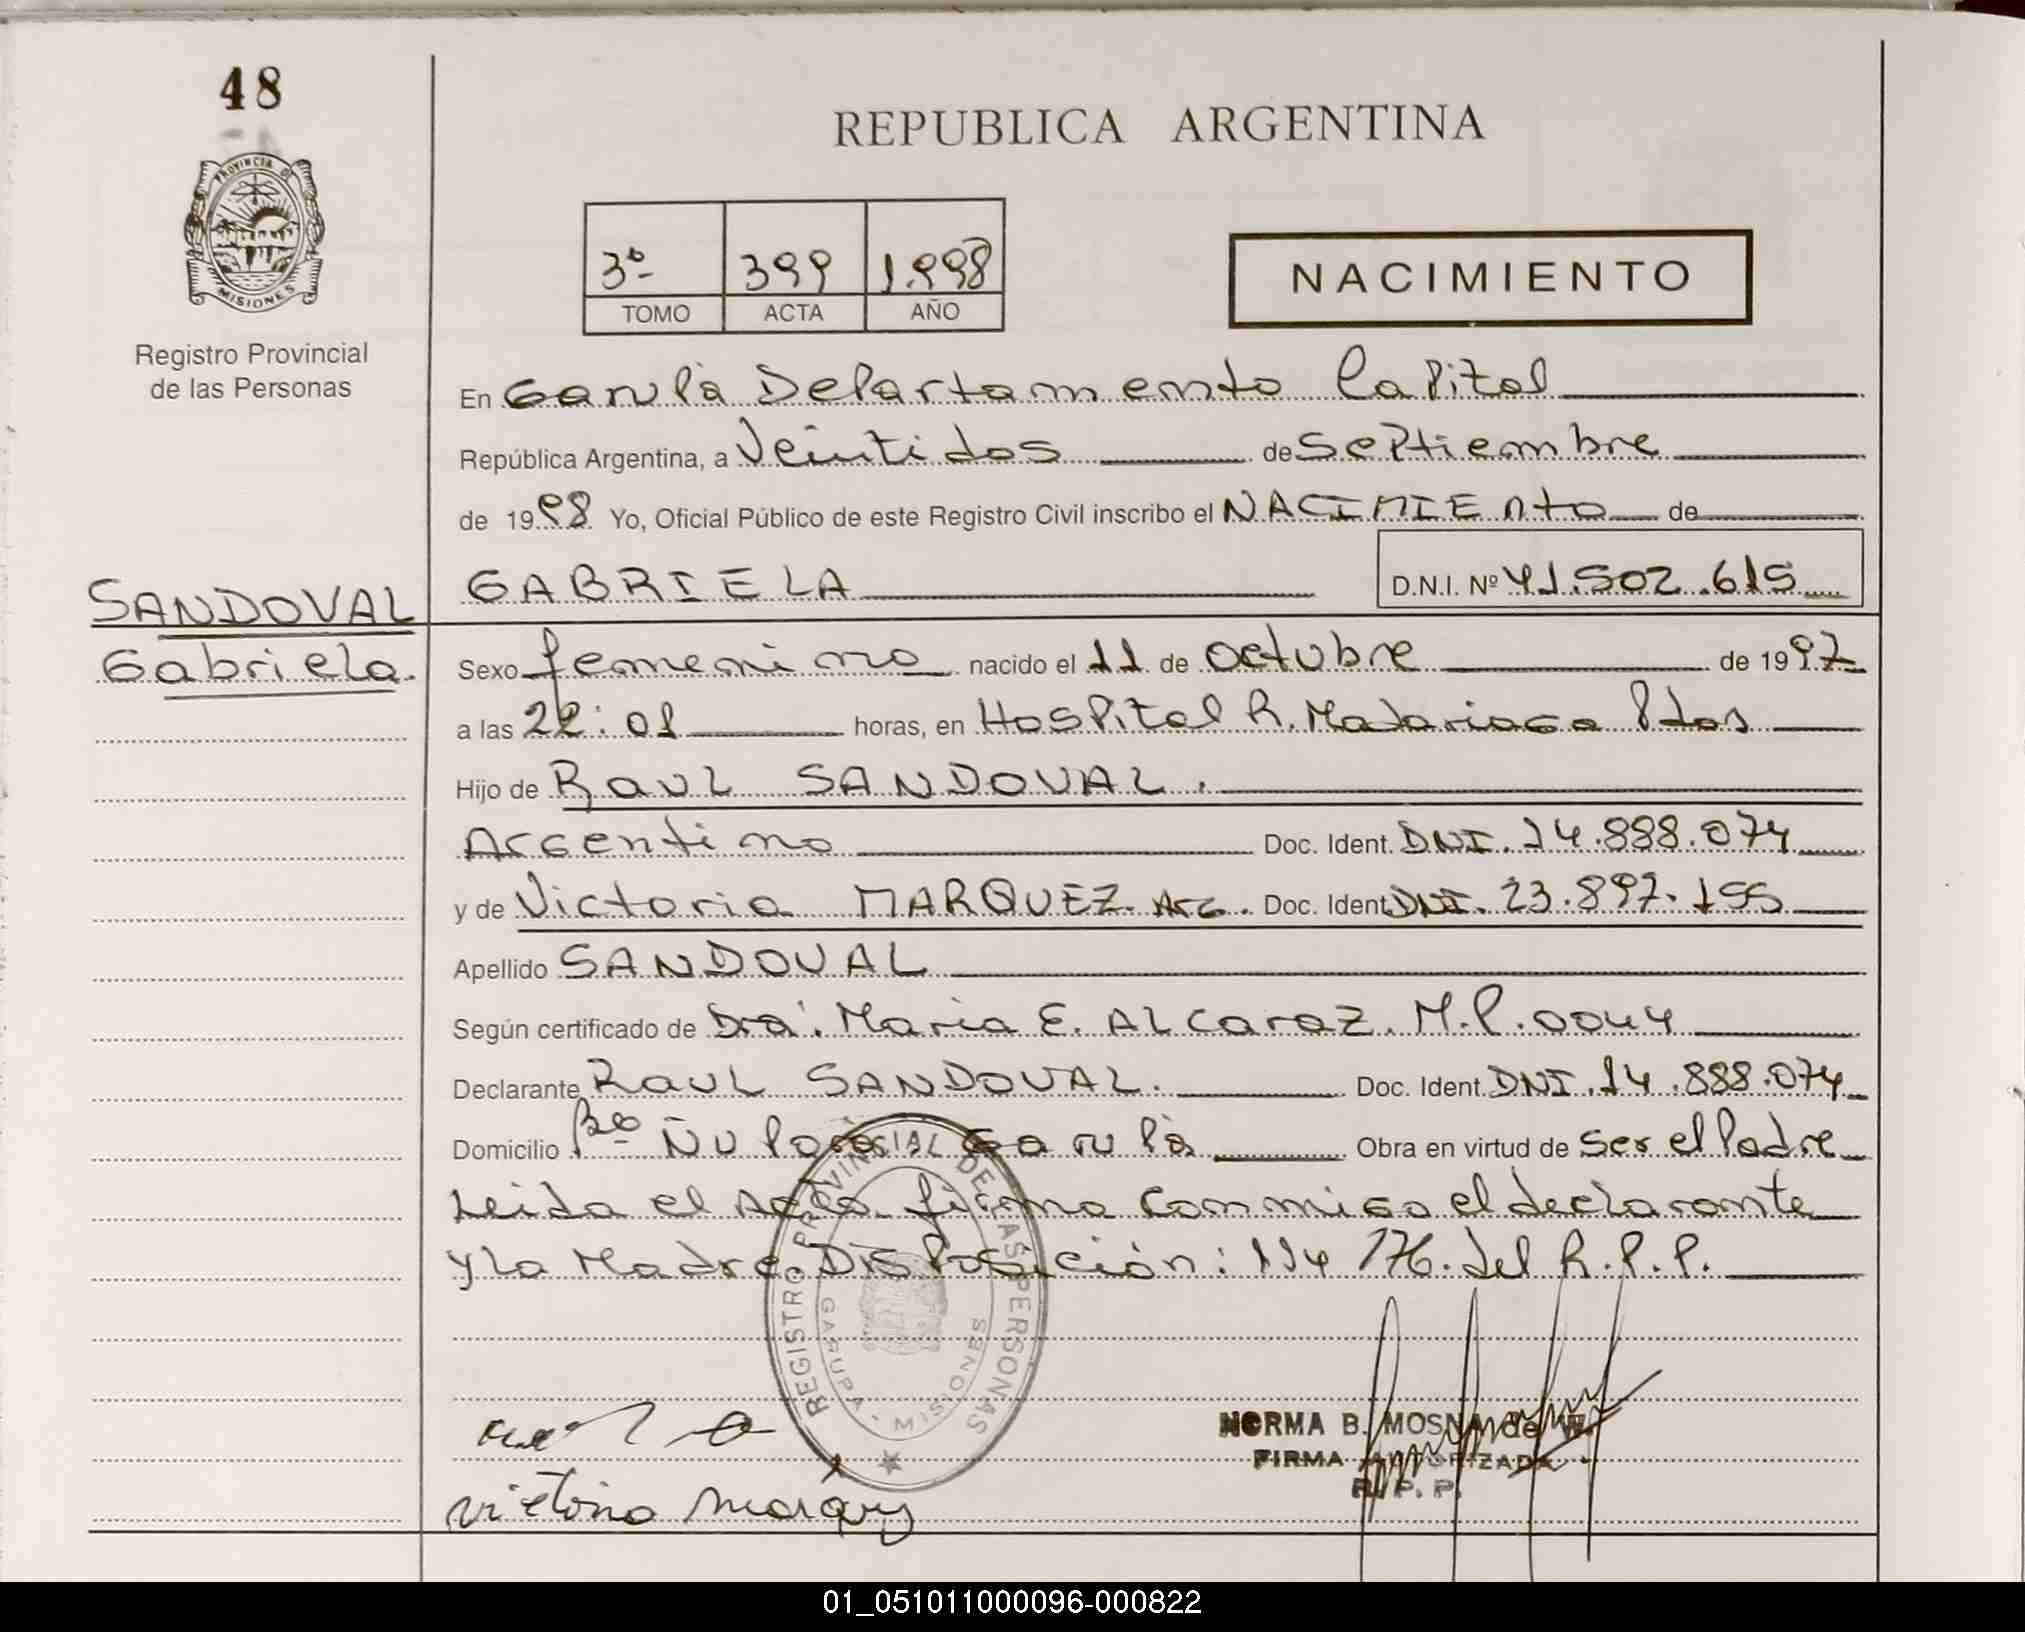 48
PROVINCIA DE
MISIONES
Registro Provincial
de las Personas
SANDOVAL
Gabriela.
REPUBLICA ARGENTINA
3º 399 1998
TOMO ACTA AÑO
NACIMIENTO
En Garupà Departamento Capital
República Argentina, a Veintidos de Septiembre
de 1998 Yo, Oficial Público de este Registro Civil inscribo el NACIMIEnto de
GABRIELA D.N.I. Nº 41.502.615
Sexo femenino nacido el 11 de Octubre de 1997
a las 22:01 horas, en Hospital R. Madariaga Pdas
Hijo de Raul SANDOVAL.
Argentino Doc. Ident. DNI. 14.888.074
y de Victoria MARQUEZ. Arg. Doc. Ident. DNI. 23.897.155
Apellido SANDOVAL
Según certificado de Dra. Maria E. Alcaraz. M.P. 0044
Declarante Raul SANDOVAL. Doc. Ident. DNI. 14.888.074
Domicilio Bº Ñu Porà Garupà Obra en virtud de Ser el Padre
Leida el Acta firma conmigo el declarante
y la Madre Disposición: 114/76. del R.P.P.
REGISTRO PROVINCIAL DE LAS PERSONAS
GARUPA - MISIONES
NORMA B. MOSNA de
FIRMA AUTORIZADA
R. P. P.
Victoria Marquez
01_051011000096-000822